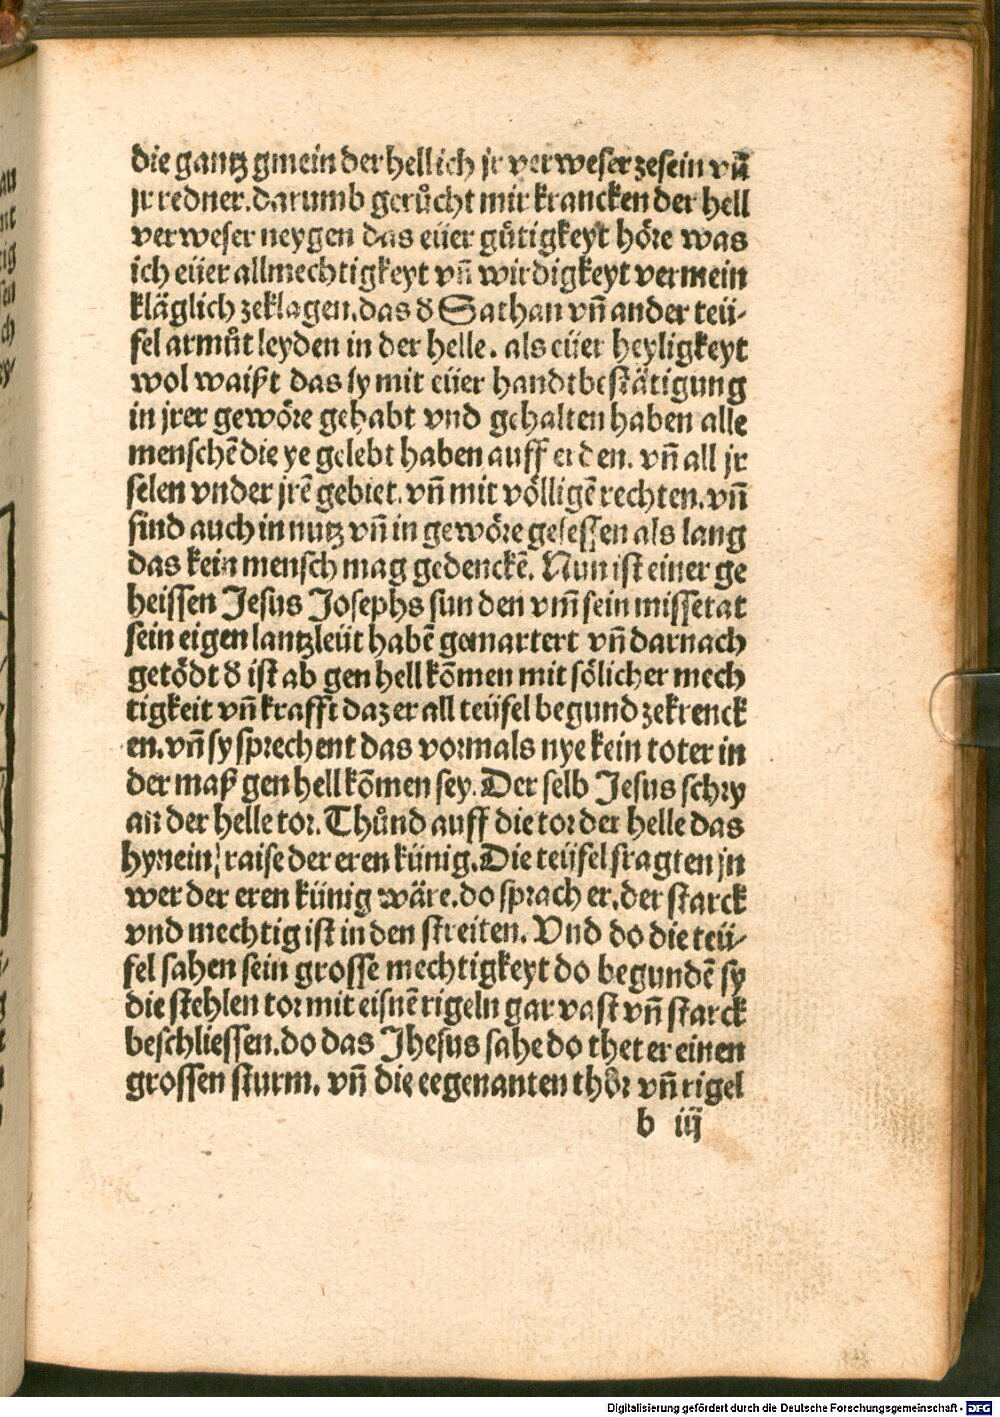 die gantz gmein der hellich jr verweser zesein vñ
jr redner. darumb gerůcht mir krancken der hell
verweser neygen das eüer gůtigkeyt höre was
ich eüer allmechtigkeyt vñ wirdigkeyt vermein
kläglich zeklagen. das d Sathan vñ ander teü⸗
fel armůt leyden in der helle. als eüer heyligkeyt
wol waißt das sy mit eüer handtbestätigung
in jrer gewöre gehabt vnd gehalten haben alle
menschē die ye gelebt haben auff erden. vñ all jr
selen vnder jrē gebiet. vñ mit völligē rechten. vñ
sind auch in nutz vñ in gewöre gesessen als lang
das kein mensch mag gedenckē. Nun ist einer ge
heissen Jesus Josephs sun den vm̄ sein missetat
sein eigen lantzleüt habē gemartert vñ darnach
getödt d ist ab gen hell kōmen mit sölicher mech
tigkeit vñ krafft daz er all teüfel begund zekrenck
en. vñ sy sprechent das vormals nye kein toter in
der maß gen hell kōmen sey. Der selb Jesus schry
an der helle tor. Thůnd auff die tor der helle das
hynein raise der eren künig. Die teüfel fragten jn
wer der eren künig wäre. do sprach er. der starck
vnd mechtig ist in den streiten. Vnd do die teü⸗
fel sahen sein grosse mechtigkeyt do begundē sy
die stehlen tor mit eisnē rigeln gar vast vñ starck
beschliessen. do das Jhesus sahe do thet er einen
grossen sturm. vñ die eegenanten thör vñ rigel
b iij
Digitalisierung gefördert durch die Deutsche Forschungsgemeinschaft - DFG